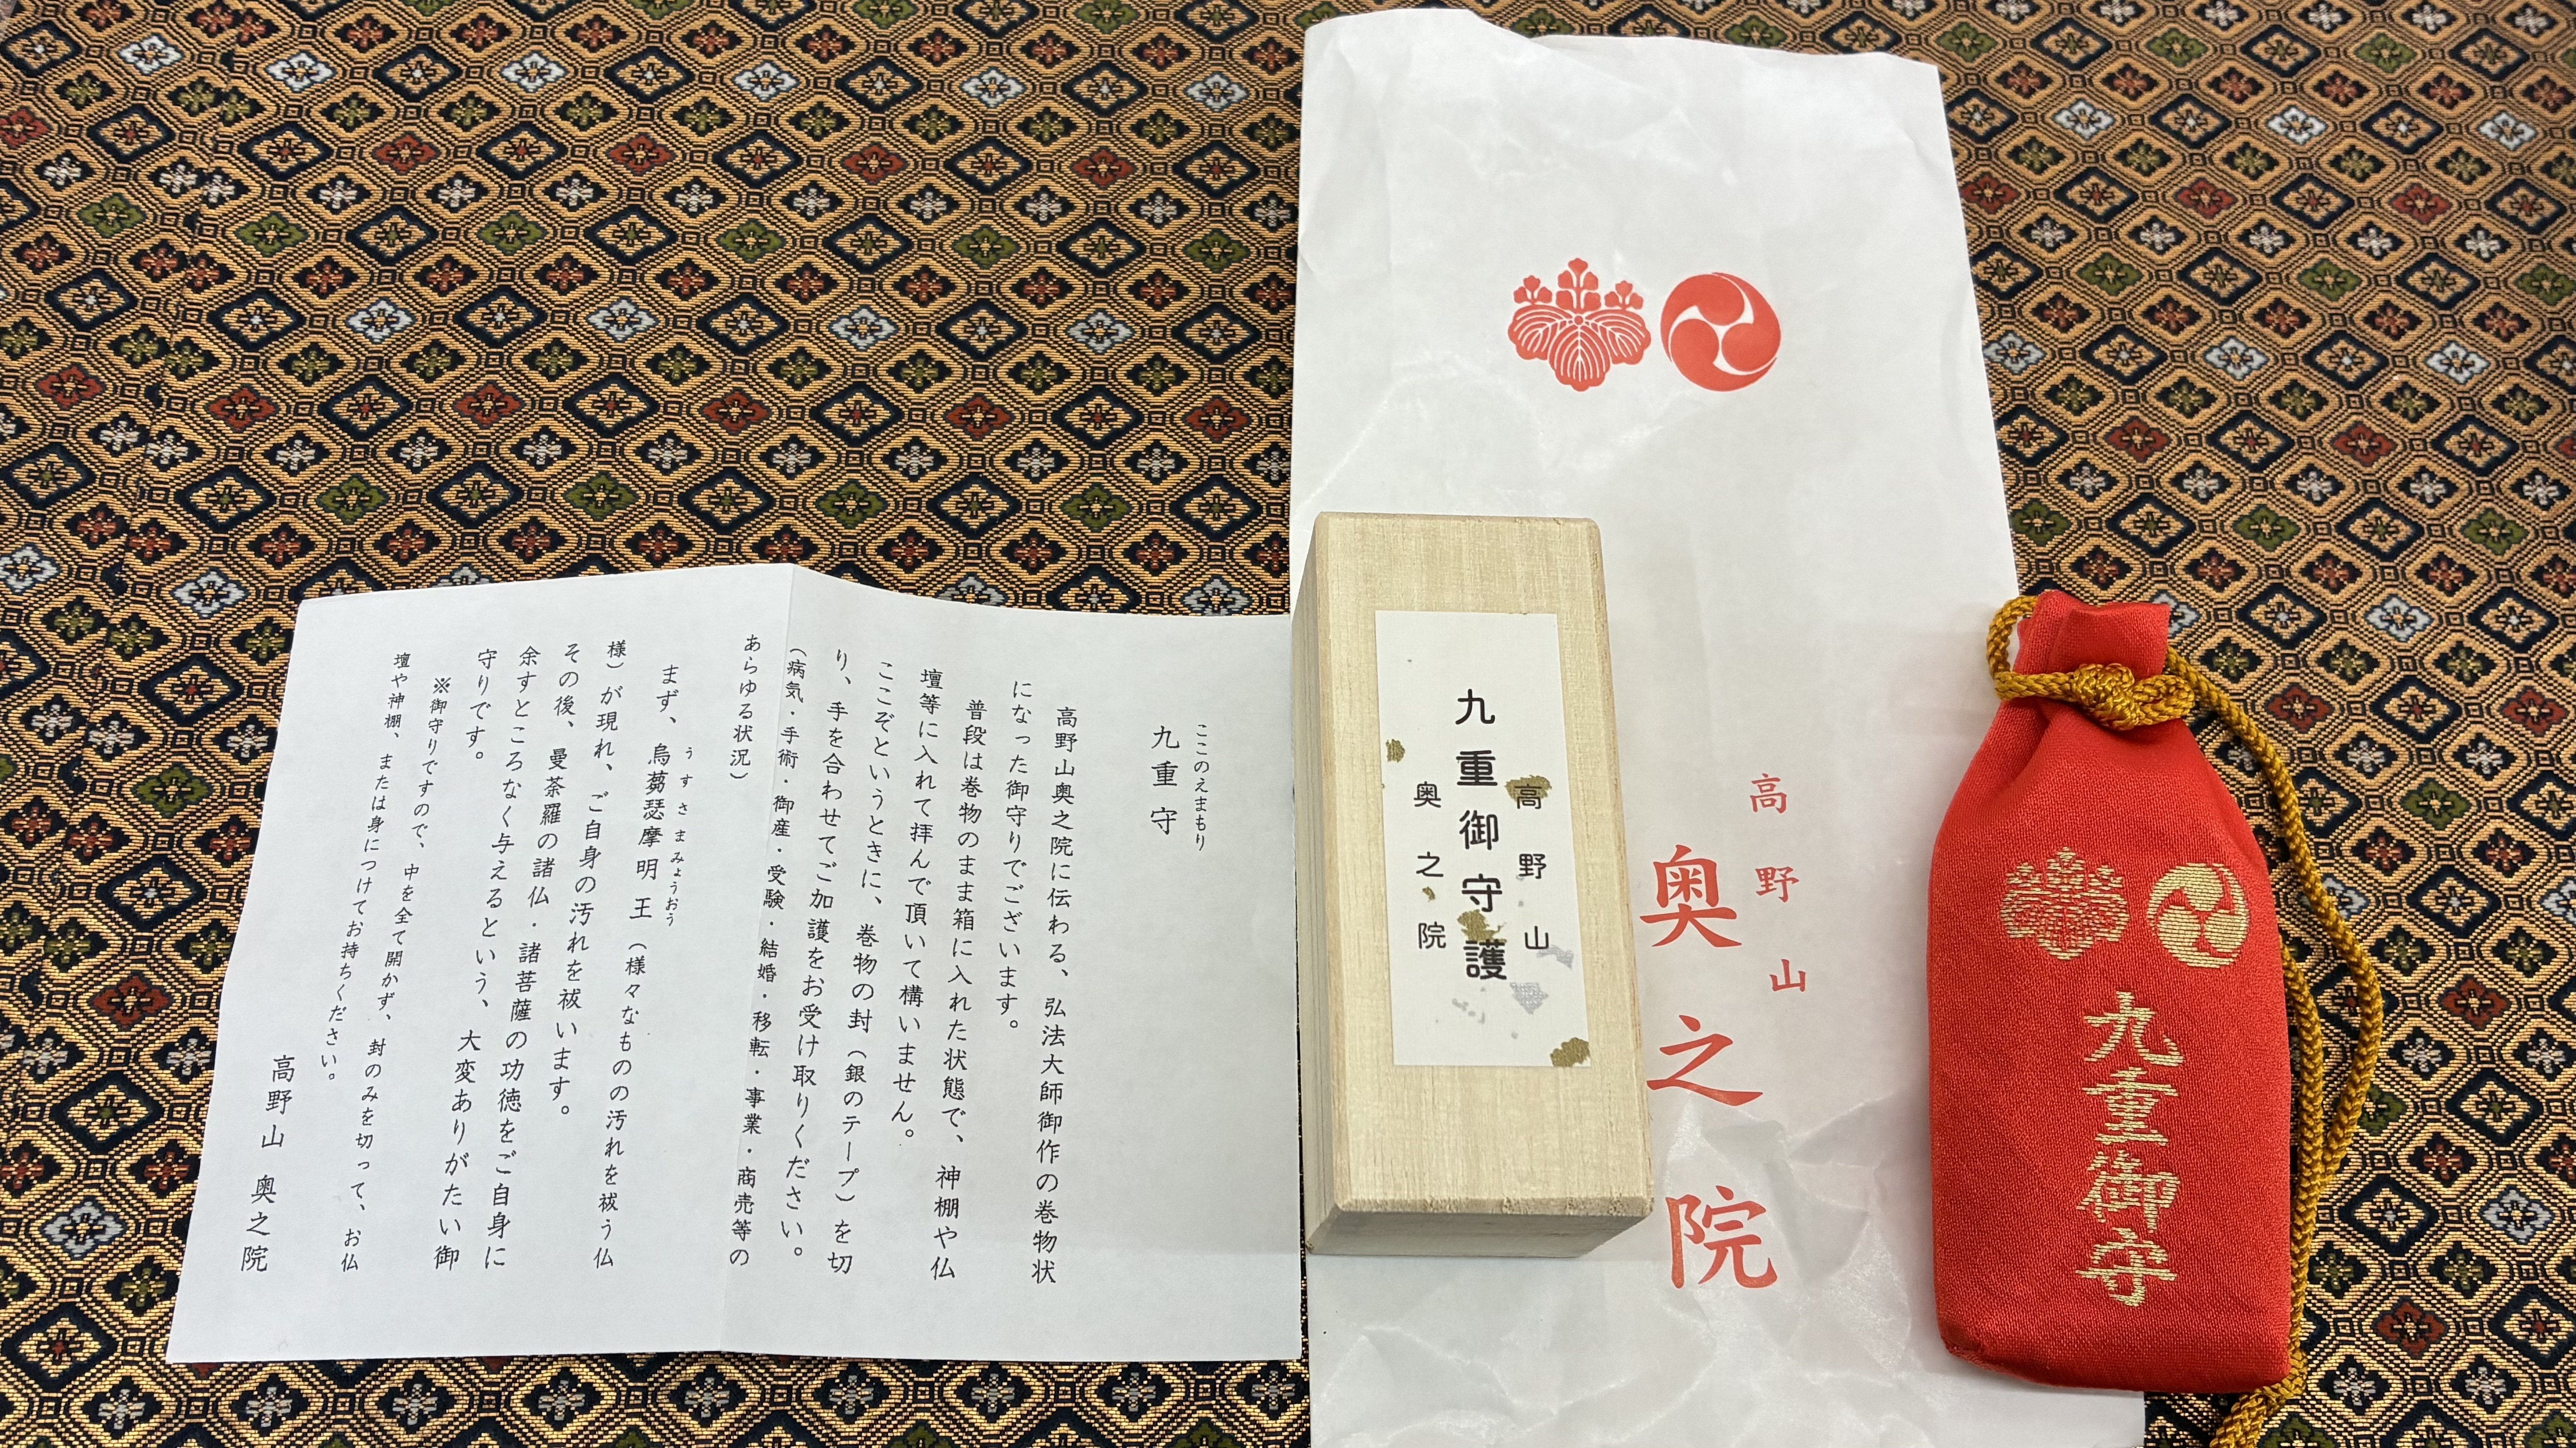 ここのえまもり
九重守
高野山奥之院に伝わる、弘法大師御作の巻物状
になった御守りでございます。
普段は巻物のまま箱に入れた状態で、神棚や仏
壇等に入れて拝んで頂いて構いません。
ここぞというときに、巻物の封（銀のテープ）を切
り、手を合わせてご加護をお受け取りください。
（病気・手術・御産・受験・結婚・移転・事業・商売等の
あらゆる状況）
うすさまみょうおう
まず、烏蒭瑟摩明王（様々なものの汚れを祓う仏
様）が現れ、ご自身の汚れを祓います。
その後、曼荼羅の諸仏・諸菩薩の功徳をご自身に
余すところなく与えるという、大変ありがたい御
守りです。
※御守りですので、中を全て開かず、封のみを切って、お仏
壇や神棚、または身につけてお持ちください。
高野山 奥之院
高野山
九重御守護
奥之院
高野山
奥之院
九重御守